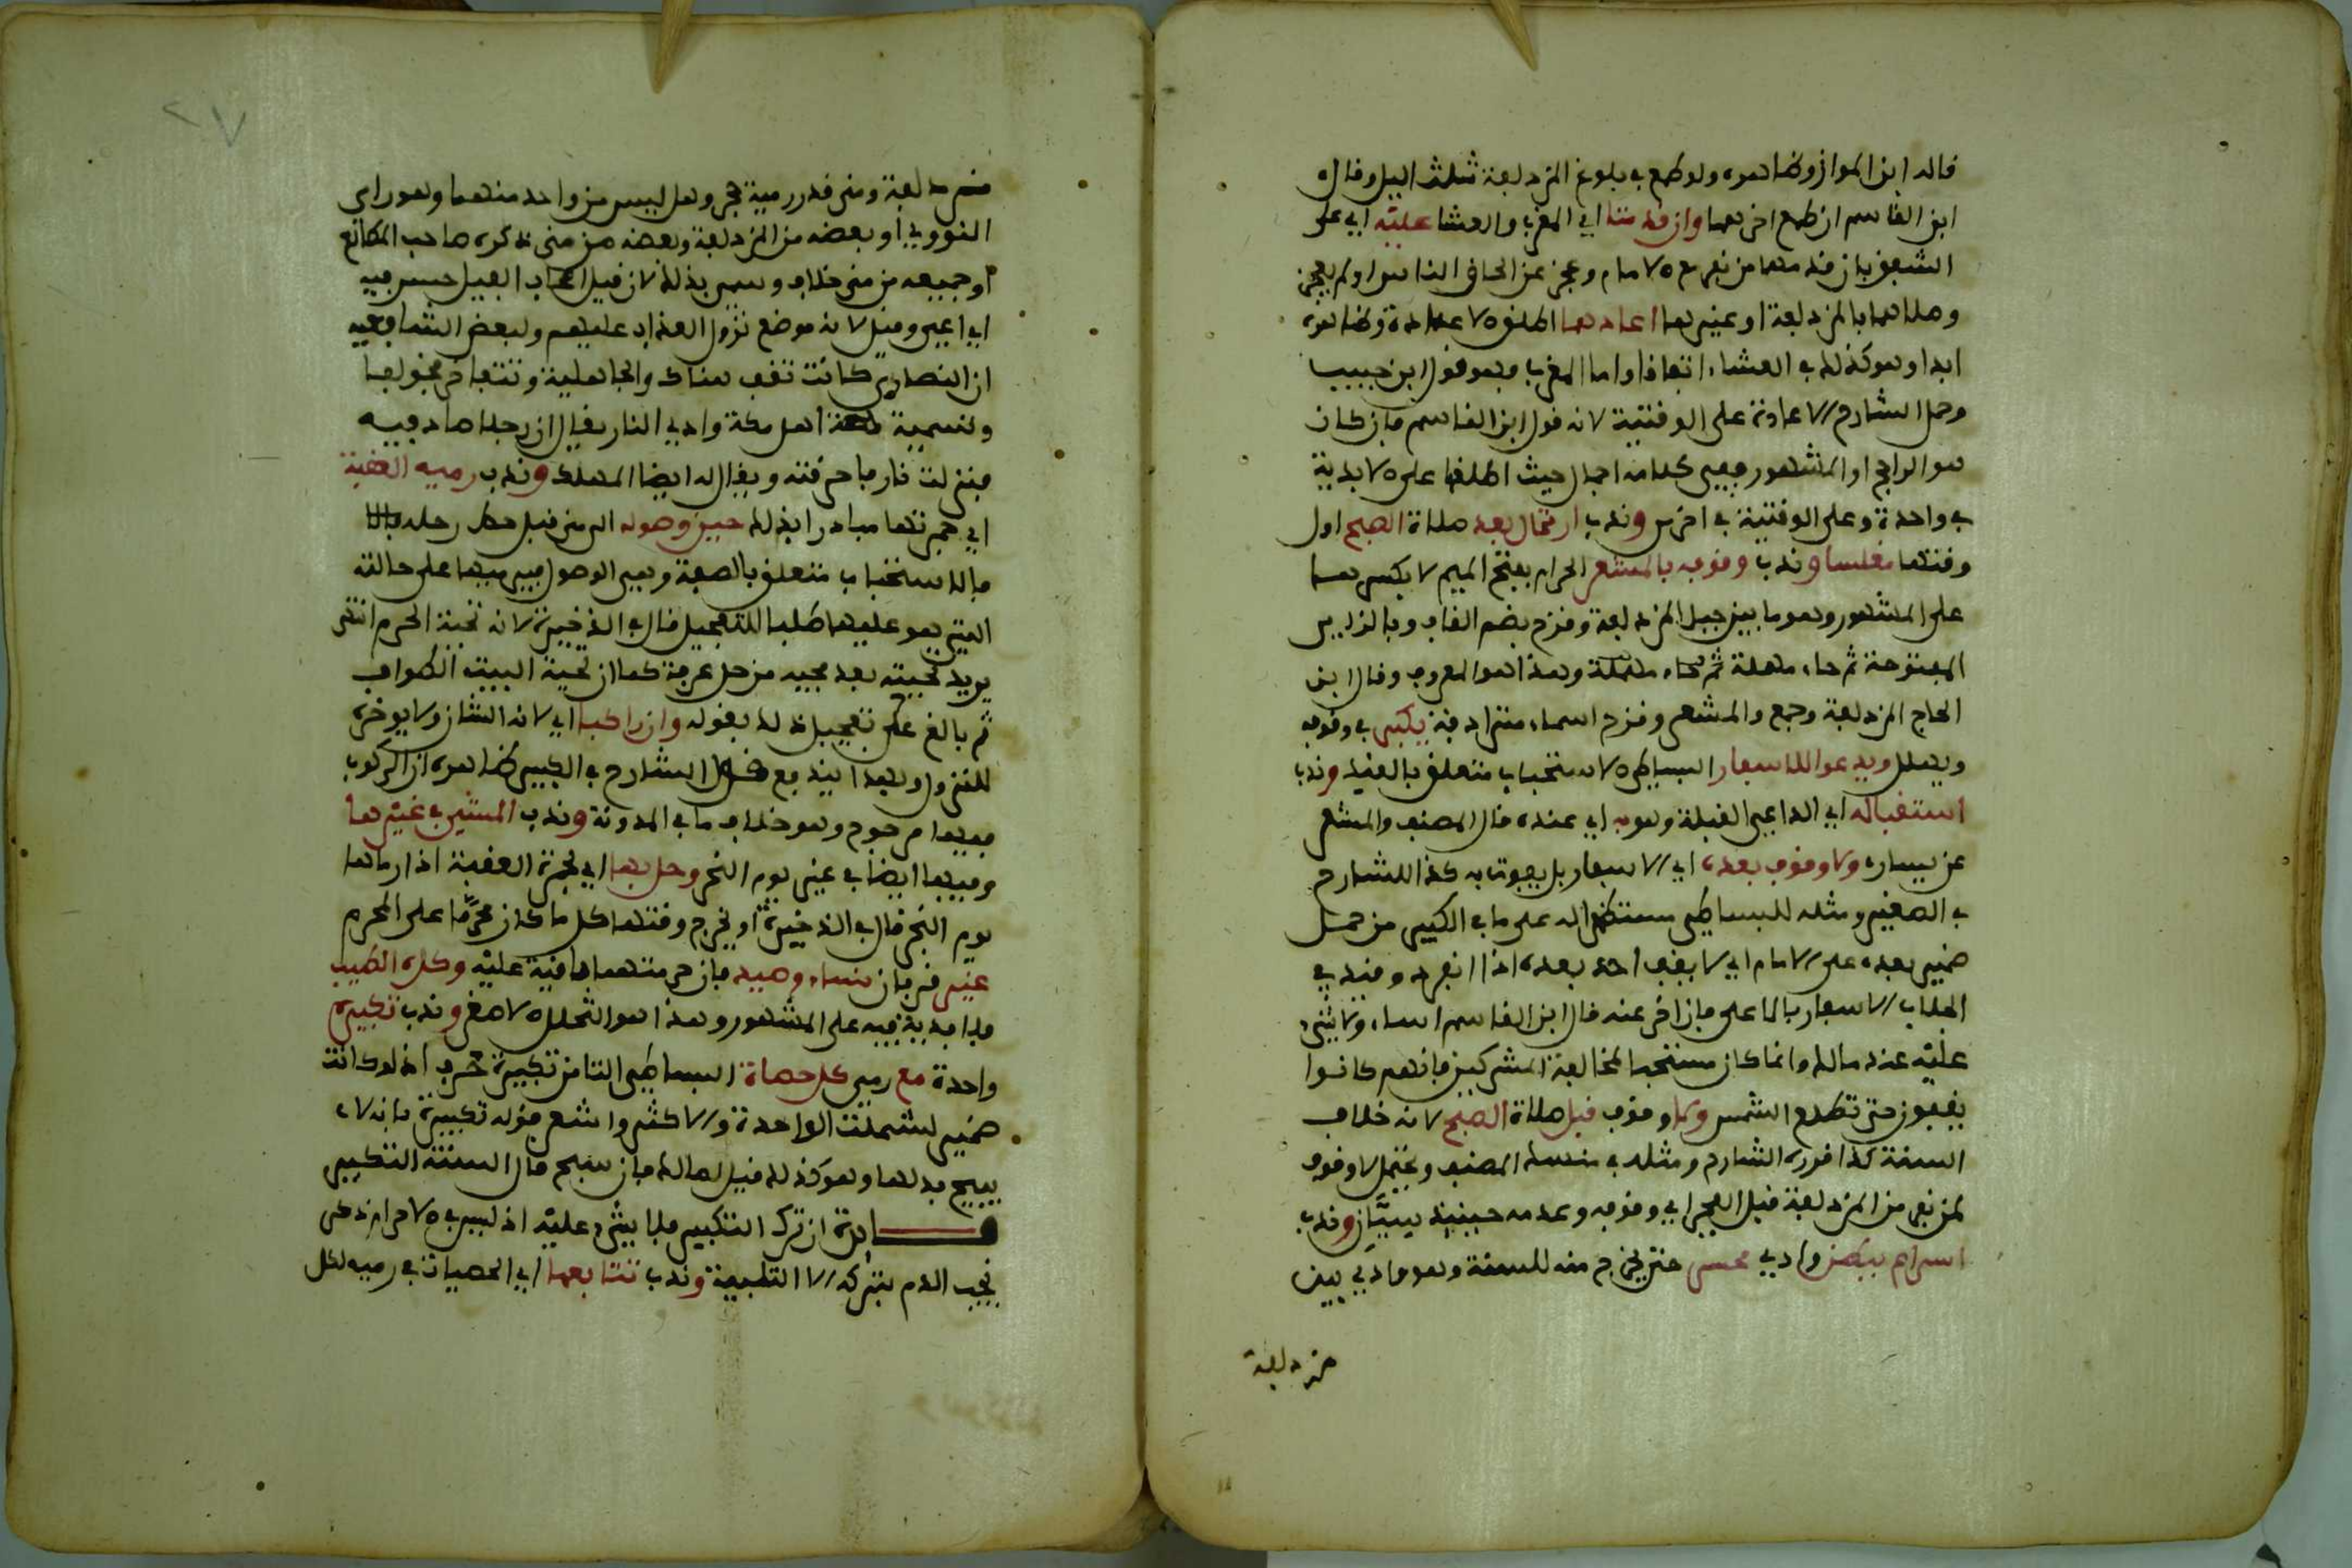 قاله ابن المواز وظاهره ولو طمع في بلوغ المزدلفة ثلث اليل وقال
ابن القاسم ان طمع اخرهما وان قدمتا اي المغرب والعشا عليه اي على
الشفق بان قدمهما من نفر مع الامام وعجز عن لحاق الناس او لم يعجز
وصلاهما بالمزدلفة او غيرها اعادهما اطلق الاعادة وظاهره
ابدا وهو كذلك في العشاء اتفاقا واما المغرب فهو قول ابن حبيب
وحمل الشارح الاعادة على الوقتية لانه قول ابن القاسم فان كان
هو الراجح او المشهور ففي كلامه اجمال حيث اطلقا على الابدية
في واحدة وعلى الوقتية في اخرى وندب ارتحال بعد صلاة الصبح اول
وقتها مغلسا وندب وقوفه بالمشعر الحرام بفتح الميم لا بكسرها
على المشهور وهو ما بين جبل المزدلفة وقزح بضم القاف وبالزاي
المفتوحة ثم حاء مهملة وهذا هو المعروف وقال ابن
الحاج المزدلفة وجمع والمشعر وقزح اسماء مترادفة يكبر في وقوفه
ويهلل ويدعو للاسفار البساطي الاستحباب متعلق بالقيد وندب
استقباله اي الداعي القبلة وهو به اي عنده قال المصنف والمشعر
عن يساره ولا وقوف بعده اي الاسفار بل يفوت به كذا للشارح
في الصغير ومثله للبساطي مستظهرا له على ما في الكبير من حمل
ضمير بعده على الامام اي لا يقف احد بعده اذا انفرد وقيد في
الجلاب الاسفار بالاعلى فان اخر عنه قال ابن القاسم اساء ولا شيء
عليه عند مالك وانما كان مستحبا لمخالفة المشركين فانهم كانوا
يقفون حتى تطلع الشمس ولا وقوف قبل صلاة الصبح لانه خلاف
السنة كذا قرره الشارح ومثله في منسك المصنف ويحتمل لا وقوف
لمن نفر من المزدلفة قبل الفجر اي وقوفه وعدمه حينئذ سيان وندب
اسراع ببطن وادي محسر حتى يخرج منه للسنة وهو وادي بين
مزدلفة
مزدلفة ومنى قدر رمية حجر وهل ليس من واحد منهما وهو راي
النووي او بعضه من المزدلفة وبعضه من منى ذكره صاحب المطالع
او جميعه من منى خلاف وسمي بذلك لان فيل اصحاب الفيل حسر فيه
اي اعيي وقيل لانه موضع نزول العذاب عليهم ولبعض الشافعية
ان النصارى كانت تقف هناك والجاهلية وتتفاخر بفخولها
وتسمية اهل مكة وادي النار يقال ان رجلا صاد فيه
فنزلت نار فاحرقته ويقال له ايضا المهلك وندب رميه العقبة
اي جمرتها مبادرا بذلك حين وصوله الى منى قبل حط رحله
فالاستحباب متعلق بالصفة وهي الوصول فيرميها على حالته
التي هو عليها طلبا للتعجيل قال في الذخيرة لانه تحية الحرم انتهى
يريد تحيته بعد مجيه من حل عرفة كما ان تحية البيت الطواف
ثم بالغ على تعجيل ذلك بقوله وان راكبا اي لانه الشان ولا يوخره
للنزول وبهذا يندفع قول الشارح في الكبير ظاهره ان الركوب
فيها مرجوح وهو خلاف ما في المدونة وندب المشي في غيرها
وفيها ايضا في غير يوم النحر وحل بها اي بجمرة العقبة اذا رماها
يوم النحر قال في الذخيرة او بخروج وقتها كل ما كان محرما على المحرم
غير قربان نساء وصيد فان حرمتهما باقية عليه وكره الطيب
فلا فدية فيه على المشهور وهذا هو التحلل الاصغر وندب تكبيره
واحدة مع رمي كل حصاة البساطي التا من تكبيرة حرف اذ لو كانت
ضمير لشملت الواحدة والاكثر واشعر قوله تكبيرة بانه لا
يسبح بدلها وهو كذلك قيل لمالك فان سبح قال السنة التكبير
فايدة ان ترك التكبير فلا شيء عليه اذ ليس في الاحرام ذكر
يجب الدم بتركه الا التلبية وندب تتابعها اي الحصيات في رميه لكل